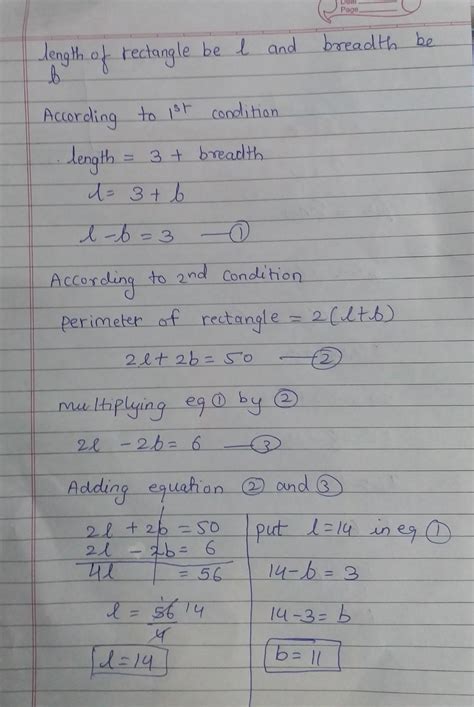 Date
Page
length of rectangle be l and breadth be
b
According to 1st condition
length = 3 + breadth
l = 3 + b
l - b = 3 — ①
According to 2nd condition
perimeter of rectangle = 2(l+b)
2l + 2b = 50 — ②
multiplying eq ① by ②
2l - 2b = 6 — ③
Adding equation ② and ③
2l + 2b = 50
2l - 2b = 6
4l = 56
l = 56 14
4
l = 14
put l = 14 in eq ①
14 - b = 3
14 - 3 = b
b = 11